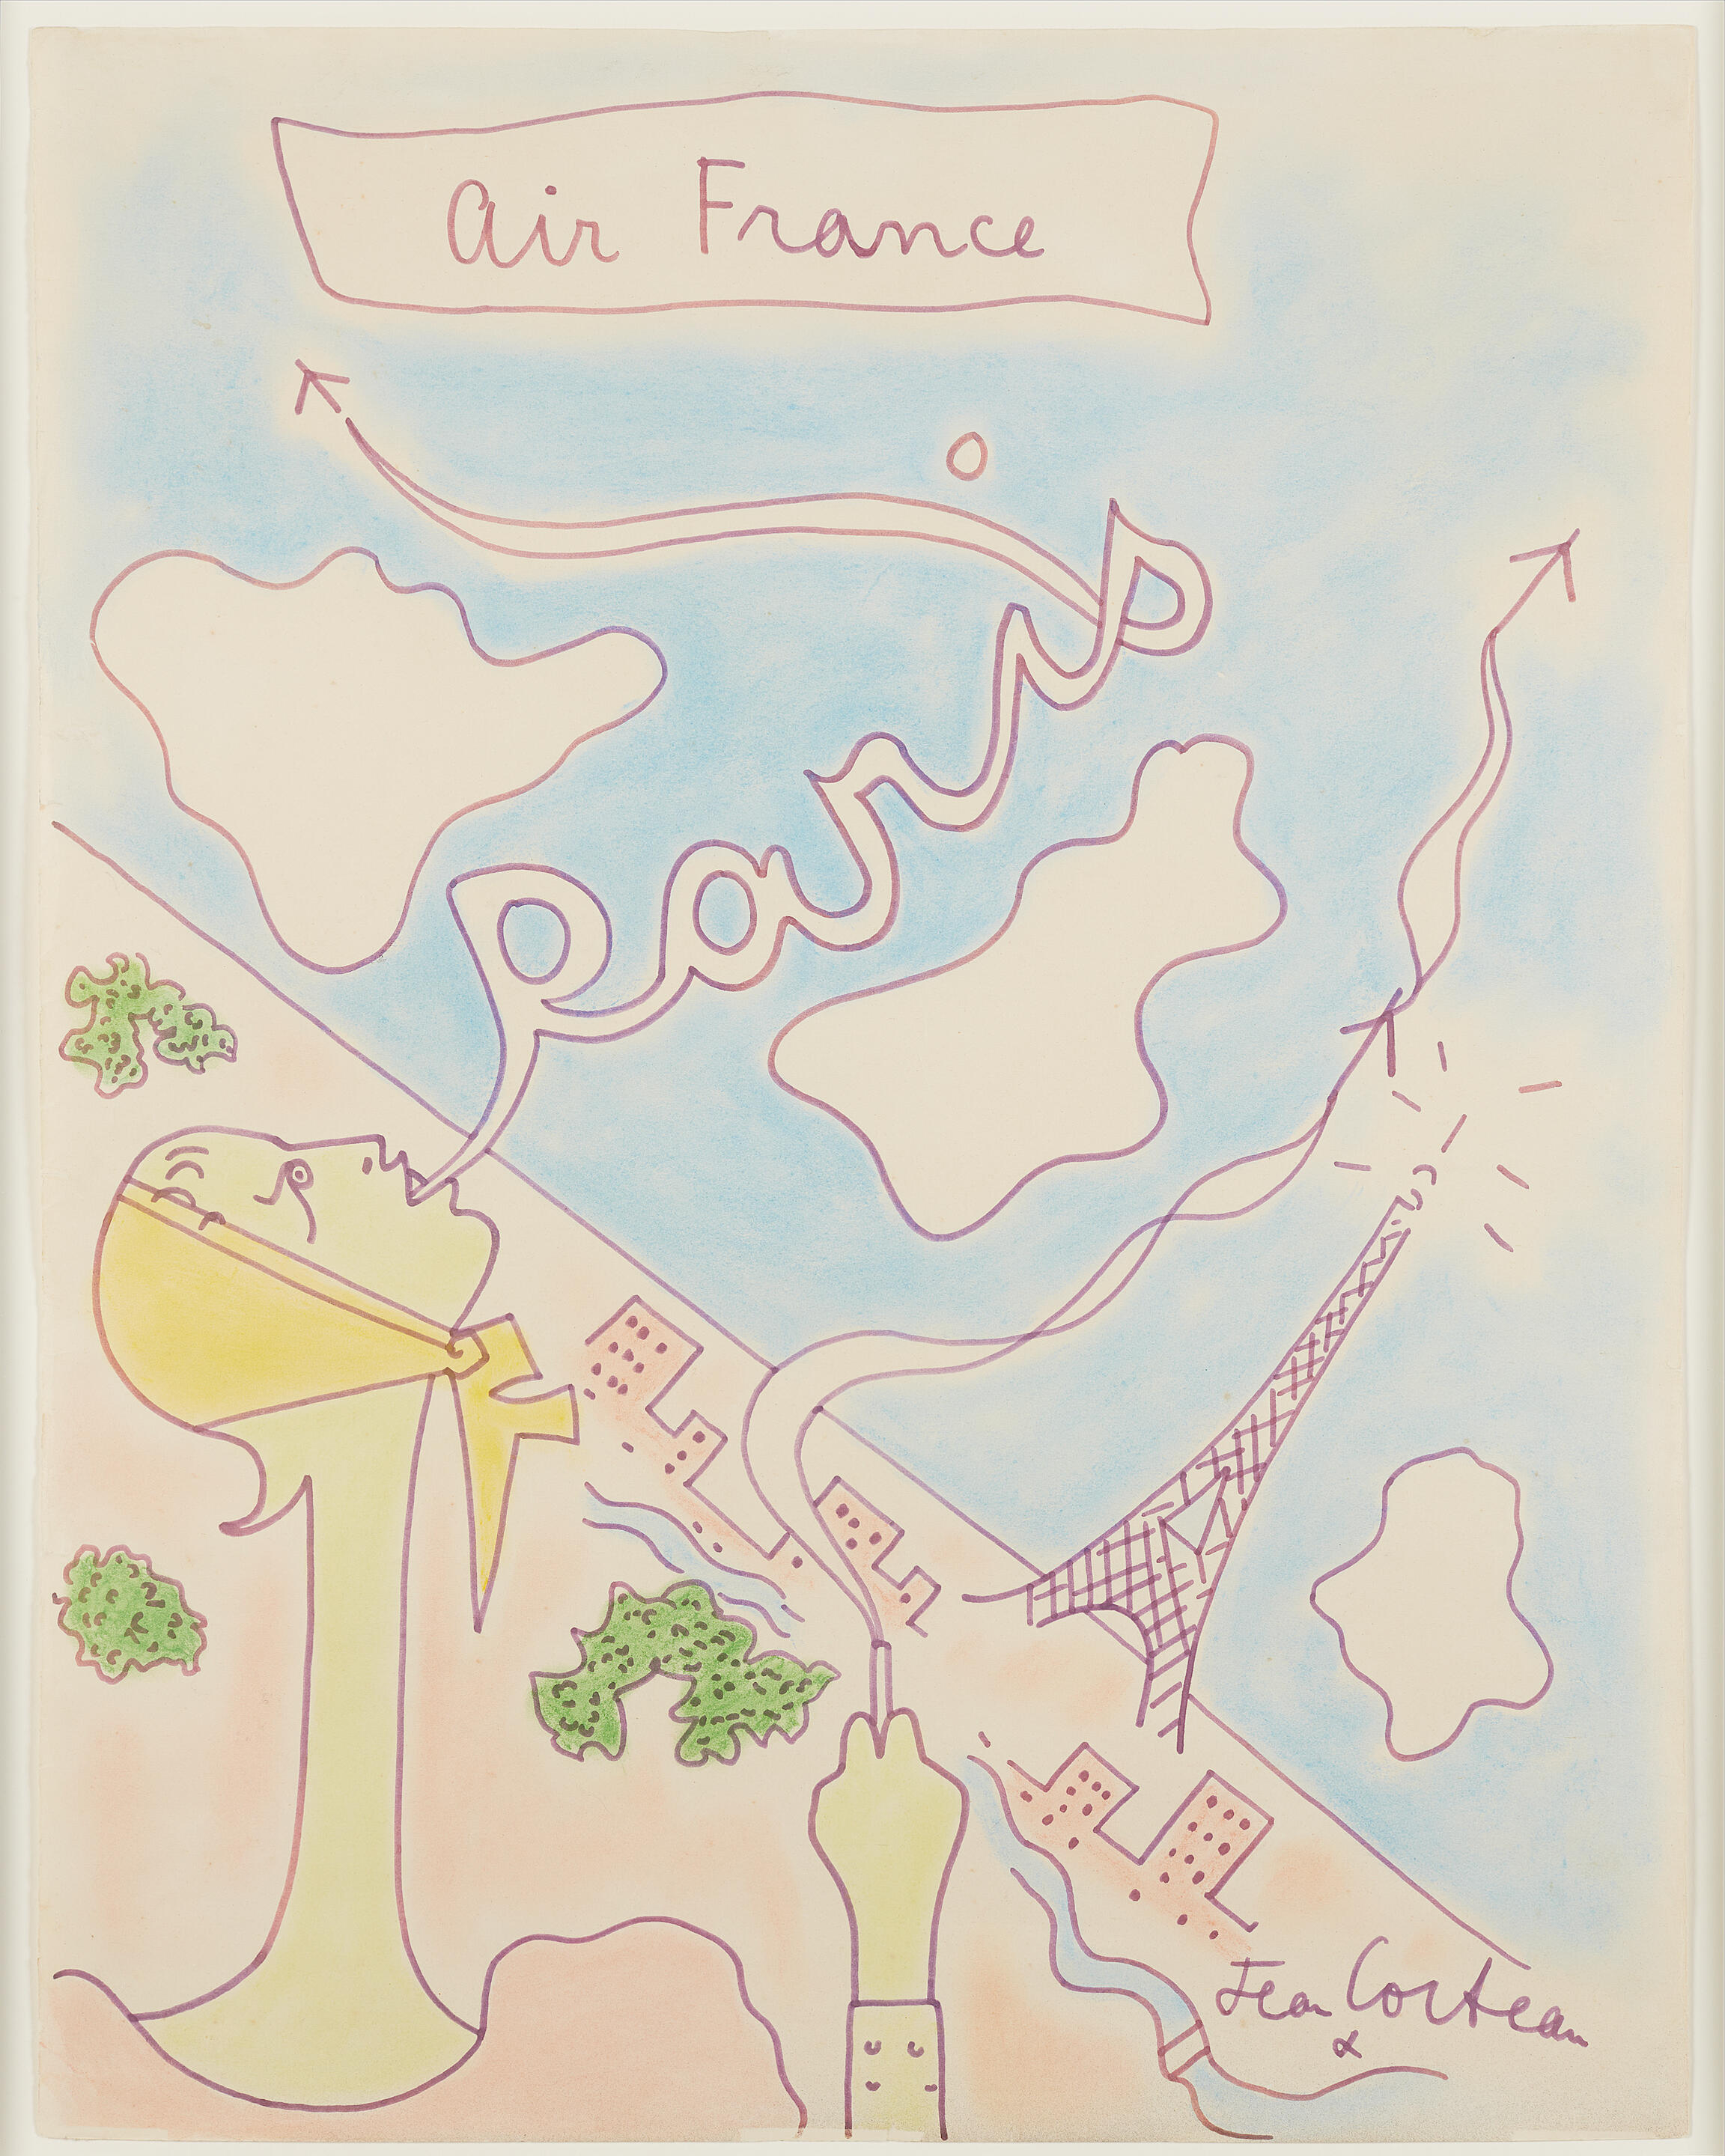 Air France
Paris
Jean Cocteau